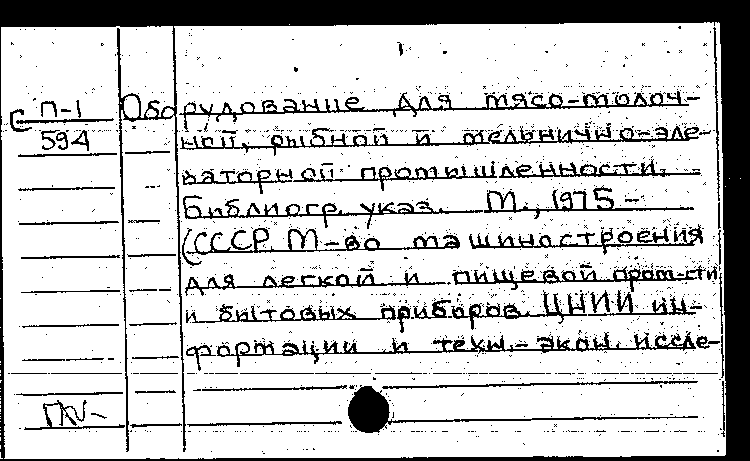 С П-1 Оборудование для мясо-молоч-
594 ной, рыбной и мельнично-эле-
ваторной промышленности.
Библиогр. указ. М., 1975 -
(СССР. М-во машиностроения
для легкой и пищевой пром-сти
и бытовых приборов. ЦНИИ ин-
формации и техн.-экон. иссле-